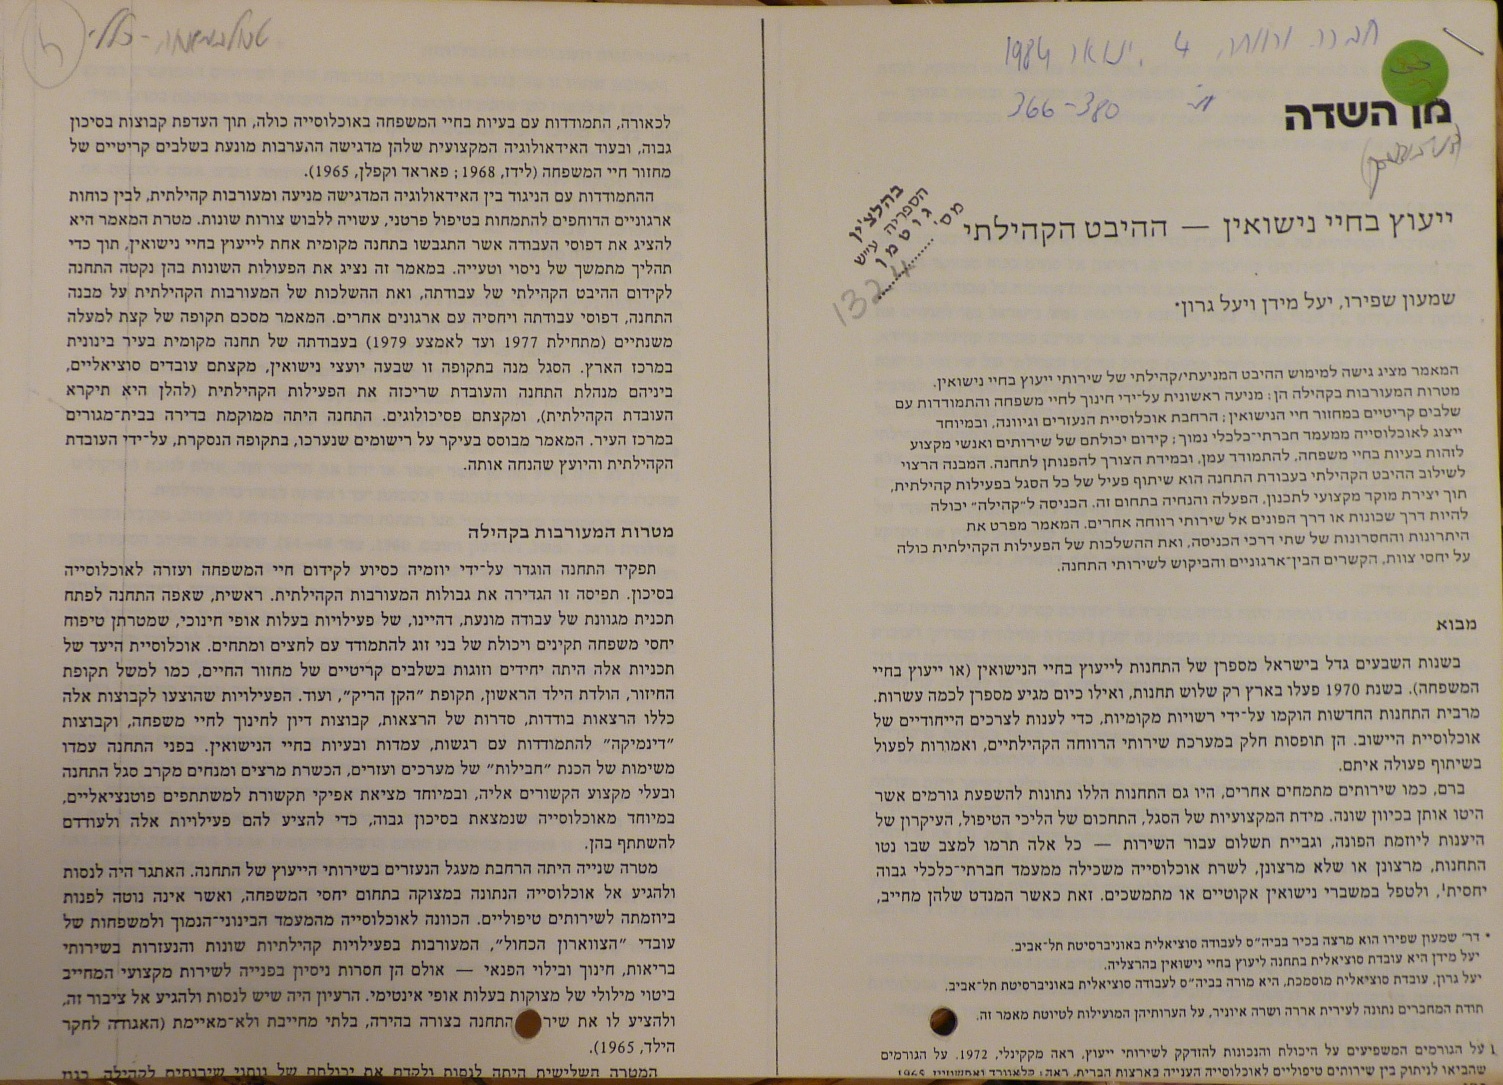 חברה ורווחה, 4 ינואר, 1984
366-380
מן השדה
בהלצ'ין
הספריה ע"ש
גוטמן
מס'
132
ייעוץ בחיי נישואין — ההיבט הקהילתי
שמעון שפירו, יעל מידן ויעל גרון*
המאמר מציג גישה למימוש ההיבט המניעתי/קהילתי של שירותי ייעוץ בחיי נישואין.
מטרות המעורבות בקהילה הן: מניעה ראשונית על־ידי חינוך לחיי משפחה והתמודדות עם
שלבים קריטיים במחזור חיי הנישואין; הרחבת אוכלוסיית הנעזרים וגיוונה, ובמיוחד
ייצוג לאוכלוסייה ממעמד חברתי־כלכלי נמוך; קידום יכולתם של שירותים ואנשי מקצוע
לזהות בעיות בחיי משפחה, להתמודד עמן, ובמידת הצורך להפנותן לתחנה. המבנה הרצוי
לשילוב ההיבט הקהילתי בעבודת התחנה הוא שיתוף פעיל של כל הסגל בפעילות קהילתית,
תוך יצירת מוקד מקצועי לתכנון, הפעלה והנחיה בתחום זה. הכניסה ל״קהילה״ יכולה
להיות דרך שכונות או דרך הפונים אל שירותי רווחה אחרים. המאמר מפרט את
היתרונות והחסרונות של שתי דרכי הכניסה, ואת ההשלכות של הפעילות הקהילתית כולה
על יחסי צוות, הקשרים הבין־ארגוניים והביקוש לשירותי התחנה.
מבוא
בשנות השבעים גדל בישראל מספרן של התחנות לייעוץ בחיי הנישואין (או ייעוץ בחיי
המשפחה). בשנת 1970 פעלו בארץ רק שלוש תחנות, ואילו כיום מגיע מספרן לכמה עשרות.
מרבית התחנות החדשות הוקמו על־ידי רשויות מקומיות, כדי לענות לצרכים הייחודיים של
אוכלוסיית היישוב. הן תופסות חלק במערכת שירותי הרווחה הקהילתיים, ואמורות לפעול
בשיתוף פעולה איתם.
ברם, כמו שירותים מתמחים אחרים, היו גם התחנות הללו נתונות להשפעת גורמים אשר
היטו אותן בכיוון שונה. מידת המקצועיות של הסגל, התחכום של הליכי הטיפול, העיקרון של
היענות ליוזמת הפונה, וגביית תשלום עבור השירות — כל אלה תרמו למצב שבו נטו
התחנות, מרצונן או שלא מרצונן, לשרת אוכלוסייה משכילה ממעמד חברתי־כלכלי גבוה
יחסית¹, ולטפל במשברי נישואין אקוטיים או מתמשכים. זאת כאשר המנדט שלהן מחייב,
* דר׳ שמעון שפירו הוא מרצה בכיר בביה״ס לעבודה סוציאלית באוניברסיטת תל־אביב.
יעל מידן היא עובדת סוציאלית בתחנה ליעוץ בחיי נישואין בהרצליה.
יעל גרון, עובדת סוציאלית מוסמכת, היא מורה בביה״ס לעבודה סוציאלית באוניברסיטת תל־אביב.
תודת המחברים נתונה לעירית אררה ושרה איוניר, על הערותיהן המועילות לטיוטת מאמר זה.
1 על הגורמים המשפיעים על היכולת והנכונות להזדקק לשירותי ייעוץ, ראה מקקינלי, 1972. על הגורמים
שהביאו לניתוק בין שירותים טיפוליים לאוכלוסייה הענייה בארצות הברית, ראה: קלאוורד ואפשטיין, 1965
לכאורה, התמודדות עם בעיות בחיי המשפחה באוכלוסייה כולה, תוך העדפת קבוצות בסיכון
גבוה, ובעוד האידאולוגיה המקצועית שלהן מדגישה התערבות מונעת בשלבים קריטיים של
מחזור חיי המשפחה (לידז, 1968; פאראד וקפלן, 1965).
ההתמודדות עם הניגוד בין האידיאולוגיה המדגישה מניעה ומעורבות קהילתית, לבין כוחות
ארגוניים הדוחפים להתמחות בטיפול פרטני, עשויה ללבוש צורות שונות. מטרת המאמר היא
להציג את דפוסי העבודה אשר התגבשו בתחנה מקומית אחת לייעוץ בחיי נישואין, תוך כדי
תהליך מתמשך של ניסוי וטעייה. במאמר זה נציג את הפעולות השונות בהן נקטה התחנה
לקידום ההיבט הקהילתי של עבודתה, ואת ההשלכות של המעורבות הקהילתית על מבנה
התחנה, דפוסי עבודתה ויחסיה עם ארגונים אחרים. המאמר מסכם תקופה של קצת למעלה
משנתיים (מתחילת 1977 ועד לאמצע 1979) בעבודתה של תחנה מקומית בעיר בינונית
במרכז הארץ. הסגל מנה בתקופה זו שבעה יועצי נישואין, מקצתם עובדים סוציאליים,
ביניהם מנהלת התחנה והעובדת שריכזה את הפעילות הקהילתית (להלן היא תיקרא
העובדת הקהילתית), ומקצתם פסיכולוגים. התחנה היתה ממוקמת בדירה בבית־מגורים
במרכז העיר. המאמר מבוסס בעיקר על רישומים שנערכו, בתקופה הנסקרת, על־ידי העובדת
הקהילתית והיועץ שהנחה אותה.
מטרות המעורבות בקהילה
תפקיד התחנה הוגדר על־ידי יוזמיה כסיוע לקידום חיי המשפחה ועזרה לאוכלוסייה
בסיכון. תפיסה זו הגדירה את גבולות המעורבות הקהילתית. ראשית, שאפה התחנה לפתח
תכנית מגוונת של עבודה מונעת, דהיינו, של פעילויות בעלות אופי חינוכי, שמטרתן טיפוח
יחסי משפחה תקינים ויכולת של בני זוג להתמודד עם לחצים ומתחים. אוכלוסיית היעד של
תכניות אלה היתה יחידים וזוגות בשלבים קריטיים של מחזור החיים, כמו למשל תקופת
החיזור, הולדת הילד הראשון, תקופת ״הקן הריק״, ועוד. הפעילויות שהוצעו לקבוצות אלה
כללו הרצאות בודדות, סדרות של הרצאות, קבוצות דיון לחינוך לחיי משפחה, וקבוצות
״דינמיקה״ להתמודדות עם רגשות, עמדות ובעיות בחיי הנישואין. בפני התחנה עמדו
משימות של הכנת ״חבילות״ של מערכים ועזרים, הכשרת מרצים ומנחים מקרב סגל התחנה
ובעלי מקצוע הקשורים אליה, ובמיוחד מציאת אפיקי תקשורת למשתתפים פוטנציאליים,
במיוחד מאוכלוסייה שנמצאת בסיכון גבוה, כדי להציע להם פעילויות אלה ולעודדם
להשתתף בהן.
מטרה שנייה היתה הרחבת מעגל הנעזרים בשירותי הייעוץ של התחנה. האתגר היה לנסות
ולהגיע אל אוכלוסייה הנתונה במצוקה בתחום יחסי המשפחה, ואשר אינה נוטה לפנות
ביוזמתה לשירותים טיפוליים. הכוונה לאוכלוסייה מהמעמד הבינוני־הנמוך ולמשפחות של
עובדי ״הצווארון הכחול״, המעורבות בפעילויות קהילתיות שונות והנעזרות בשירותי
בריאות, חינוך ובילוי הפנאי — אולם הן חסרות ניסיון בפנייה לשירות מקצועי המחייב
ביטוי מילולי של מצוקות בעלות אופי אינטימי. הרעיון היה שיש לנסות ולהגיע אל ציבור זה,
ולהציע לו את שיר התחנה בצורה בהירה, בלתי מחייבת ולא־מאיימת (האגודה לחקר
הילד, 1965).
המטרה השלישית היתה לנסות ולקדם את יכולתם של נותני שירותים לקהילה, כגון